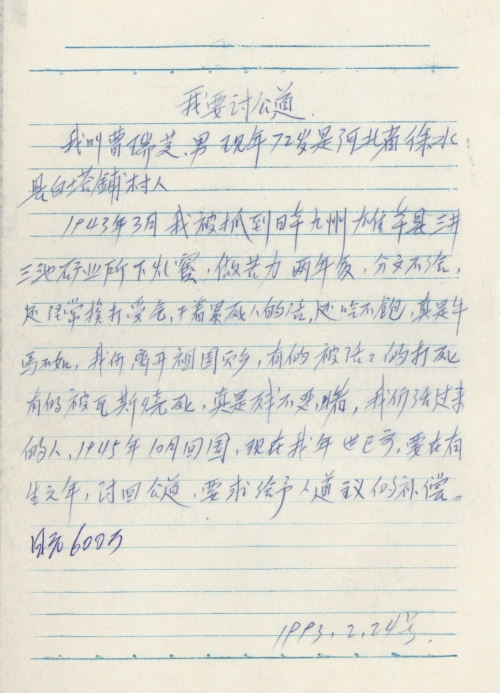 我要讨公道.
我叫曹瑞芝,男 现年72岁是河北省徐水
县白塔铺村人
1943年3月 我被抓到日本九州 县三井
三池矿业所下 , 做苦力 两年多, 分文不给,
还经常挨打受气,干着累死人的活,还吃不饱,真是牛
马不如, 我们离开祖国 乡, 有的被活々的打死
有的被瓦斯烧死, 真是 不 睹, 我们活过来
的人, 1945年10月回国, 现在我年 已高, 要在有
生之年, 讨回公道, 要求给予人道 的补偿。
日元600万
1993.2.24号.